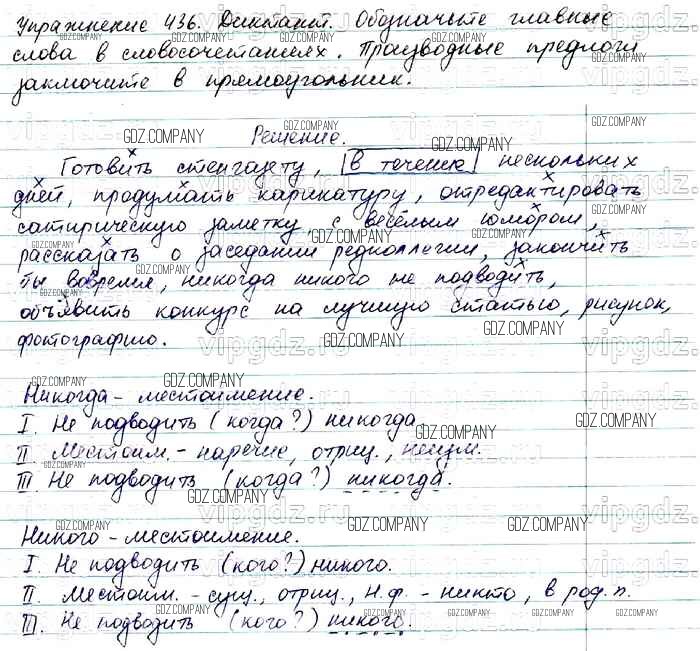 Упражнение 436. Диктант. Обозначьте главные
слова в словосочетаниях. Производные предлоги
заключите в прямоугольник.
Решение.
Готовить стенгазету, в течение нескольких
дней, продумать карикатуру, отредактировать
сатирическую заметку, с весёлым юмором,
рассказать о заседании редколлегии, закончить
вовремя, никогда никого не подводить,
объявить конкурс на лучшую статью, рисунок,
фотографию.
Никогда - местоимение.
I. Не подводить (когда?) никогда.
II. Местоим. - наречие, отриц., неизм.
III. Не подводить (когда?) никогда.
Никого - местоимение.
I. Не подводить (кого?) никого.
II. Местоим. - сущ., отриц., н.ф. - никто, в род. п.
III. Не подводить (кого?) никого.
GDZ.COMPANY
vipgdz.ru